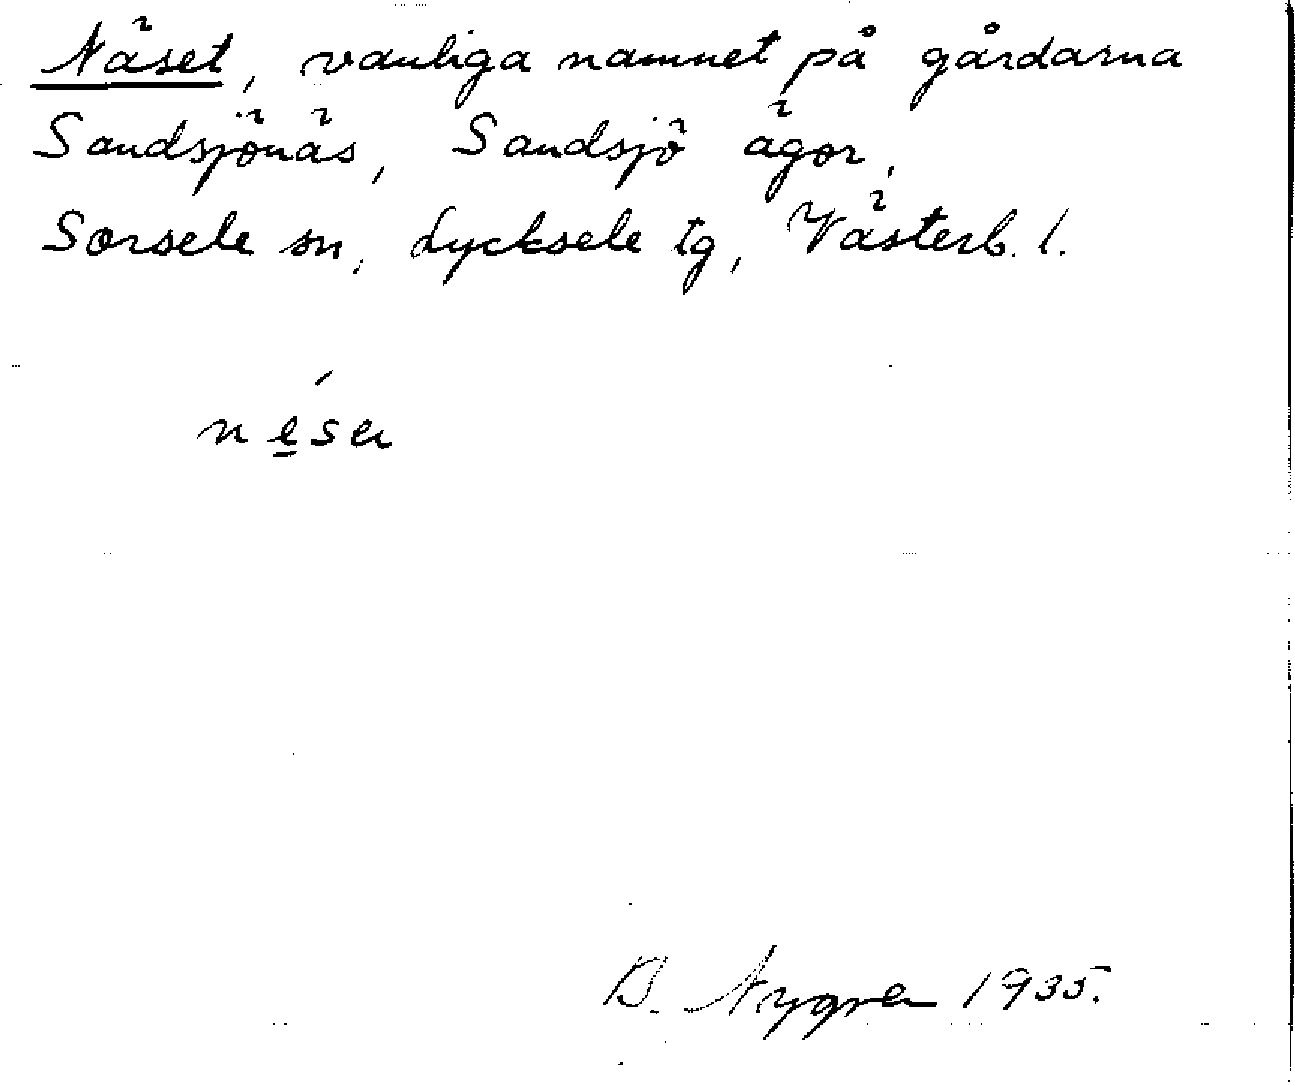 Näset, vanliga namnet på gårdarna
Sandsjönäs, Sandsjö ägor,
Sorsele sn, Lycksele tg, Västerb. l.
ne̲´sa
B. Nygren 1935.